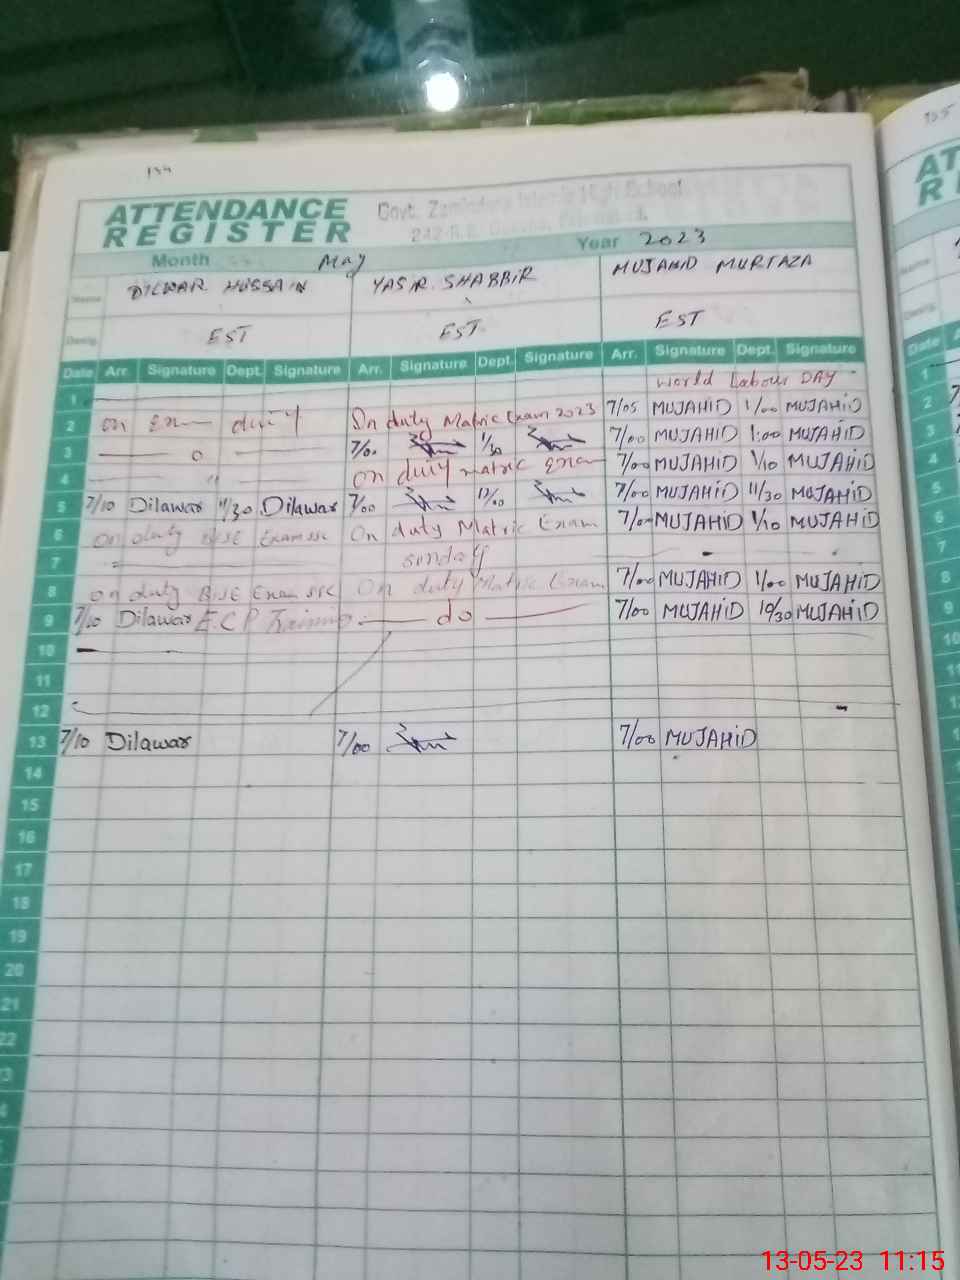 134
ATTENDANCE
REGISTER
Govt. Zamindara Islamia High School
242-R.B.
Month May Year 2023
Name DILWAR HUSSAIN YASIR SHABBIR MUJAHID MURTAZA
Desig. EST EST EST
Date Arr. Signature Dept. Signature Arr. Signature Dept. Signature Arr. Signature Dept. Signature
1 World Labour DAY
2 on Exam duty On duty Matric Exam 2023 7/05 MUJAHID 1/00 MUJAHID
3 7/00 1/30 7/00 MUJAHID 1:00 MUJAHID
4 " on duty matric exam 7/00 MUJAHID 1/10 MUJAHID
5 7/10 Dilawar 11/30 Dilawar 7/00 7/00 MUJAHID 11/30 MUJAHID
6 on duty BISE Exam SSC On duty Matric Exam 7/00 MUJAHID 1/10 MUJAHID
7 sunday
8 on duty BISE Exam SSC On duty Matric Exam 7/00 MUJAHID 1/00 MUJAHID
9 7/10 Dilawar E.C.P Training do 7/00 MUJAHID 10/30 MUJAHID
10
11
12
13 7/10 Dilawar 7/00 7/00 MUJAHID
14
15
16
17
18
19
20
21
22
3
4
135
AT
R
Name
Desig.
Date A
1
2
3
4
5
6
7
8
9
10
11
13-05-23 11:15